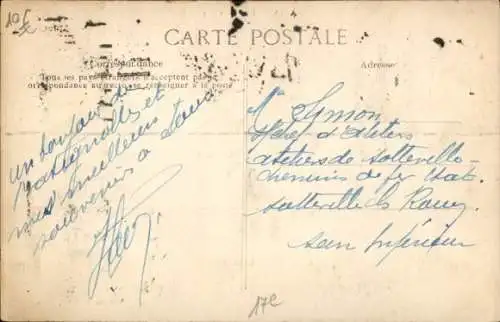 10f
CARTE POSTALE
Correspondance
Tous les pays étrangers n'acceptent pas la
correspondance au recto se renseigner à la poste
Adresse
un bonjour de
Batignolles et
mes meilleurs
souvenirs a tous
Mr Symon
chef d'ateliers
ateliers de Sotteville
chemins de fer Etat
Sotteville les Rouen
Sein Inférieur
17e